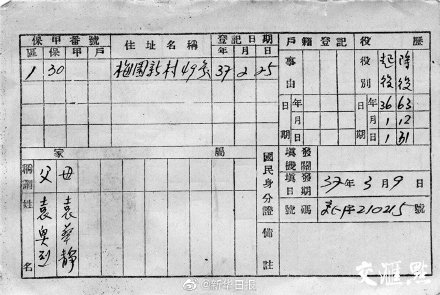 保甲番號
區 保 甲 戶
住址名稱
登記日期
年 月 日
戶籍登記
事由
役別
役歷
起役
除役
1 30
梅園新村49號
37 2 25
日期
年 月 日
36 1 1
63 12 31
家屬
稱謂
父 母
姓名
袁奥烈
袁華靜
國民身分證
填發機關
填發日期
37年3月9日
號碼
210215號
備註
@新华日报
文匯點